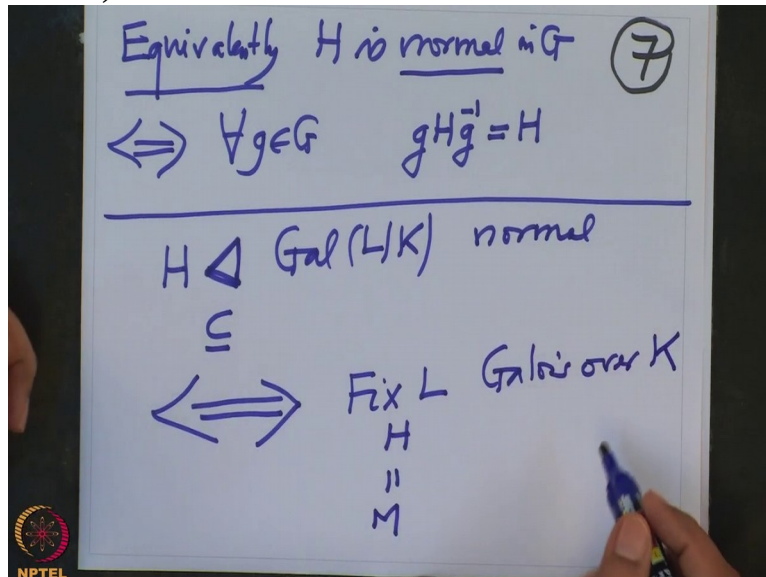 Equivalently H is normal in G
7
⟺ ∀g∈G gHg⁻¹ = H
H ⊲ Gal(L|K) normal
⊆
⟺ Fix L Galois over K
H
=
M
NPTEL